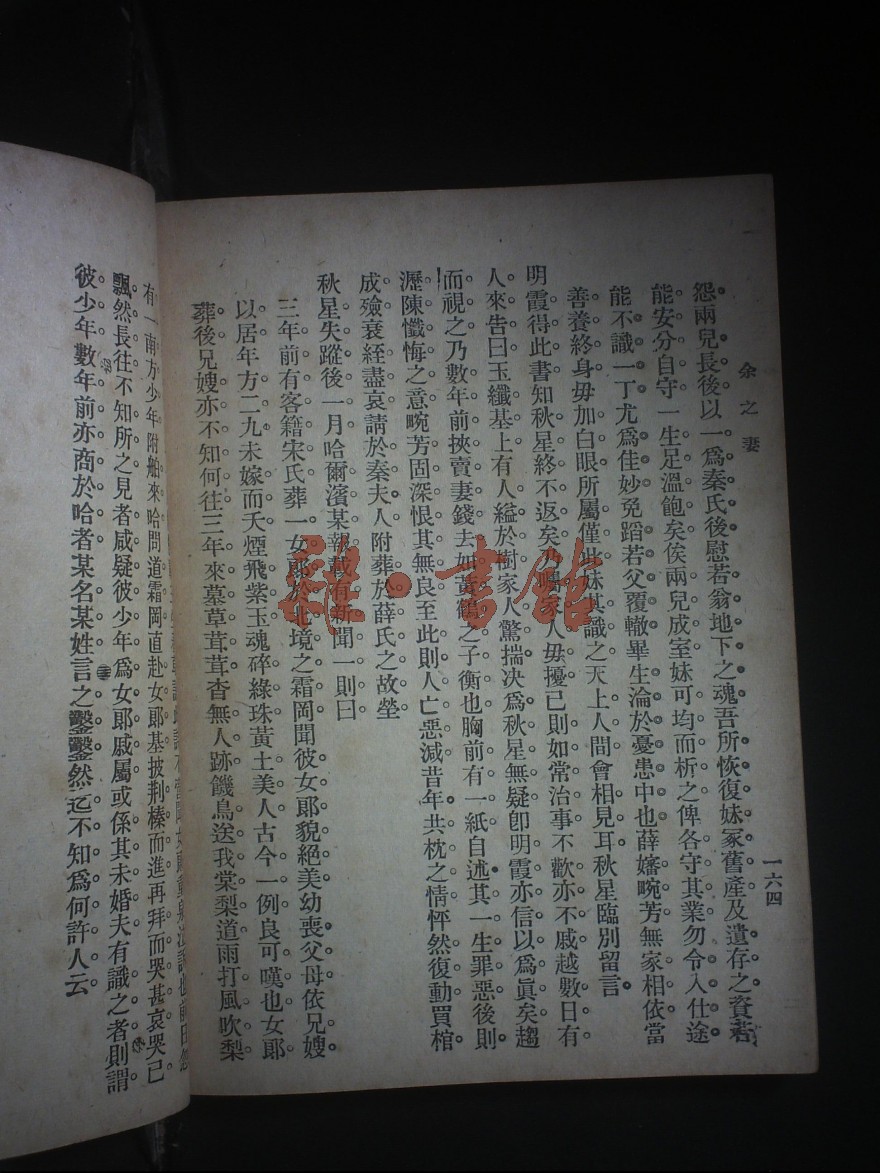 余之妻
一六四
怨兩兒長後以一爲秦氏後慰若翁地下之魂吾所恢復妹冢舊產及遺存之資若
能安分自守一生足溫飽矣俟兩兒成室妹可均而析之俾各守其業勿令入仕途
能不識一丁尤爲佳妙免蹈若父覆轍畢生淪於憂患中也薛嬸畹芳無家相依當
善養終身毋加白眼所屬僅此妹其識之天上人間會相見耳秋星臨別留言
明霞得此書知秋星終不返矣乃囑家人毋擾已則如常治事不歡亦不戚越數日有
人來告曰玉纖基上有人縊於樹家人驚揣决爲秋星無疑卽明霞亦信以爲眞矣趨
而視之乃數年前挾賣妻錢去如黃鶴之子衡也胸前有一紙自述其一生罪惡後則
瀝陳懺悔之意畹芳固深恨其無良至此則人亡惡減昔年共枕之情怦然復動買棺
成殮衰絰盡哀請於秦夫人附葬於薛氏之故塋
秋星失蹤後一月哈爾濱某報載有新聞一則曰
三年前有客籍宋氏葬一女郞於北境之霜岡聞彼女郞貌絕美幼喪父母依兄嫂
以居年方二九未嫁而夭煙飛紫玉魂碎綠珠黃土美人古今一例良可嘆也女郞
葬後兄嫂亦不知何往三年來墓草茸茸杳無人跡饑鳥送我棠梨道雨打風吹梨
有一南方少年附舶來哈問道霜岡直赴女郞基披荆榛而進再拜而哭甚哀哭已
飄然長往不知所之見者咸疑彼少年爲女郞戚屬或係其未婚夫有識之者則謂
彼少年數年前亦商於哈者某名某姓言之鑿鑿然迄不知爲何許人云